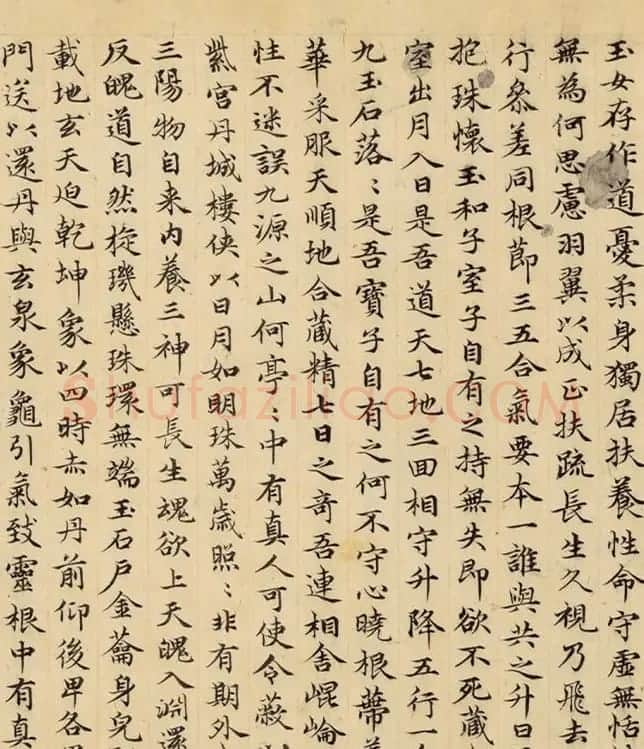 玉女存作道憂柔身獨居扶養性命守虛無恬
無為何思慮羽翼以成正扶疏長生久視乃飛去
行叅差同根莭三五合氣要本一誰與共之升日
抱珠懷玉和子室子自有之持無失即欲不死藏
室出月入日是吾道天七地三回相守升降五行一
九玉石落〻是吾寶子自有之何不守心曉根蔕
華采服天順地合藏精七日之奇吾連相舎崐崘
性不迷誤九源之山何亭〻中有真人可使令蔽以
紫宮丹城樓俠以日月如明珠萬歲照〻非有期外
三陽物自来內養三神可長生魂欲上天魄入淵還
反魄道自然㨁璣懸珠環無端玉石戶金蘥身兒
載地玄天迫乾坤象以四時赤如丹前仰後卑各
門送以還丹與玄泉象龜引氣致靈根中有真
Shufaziliao.COM